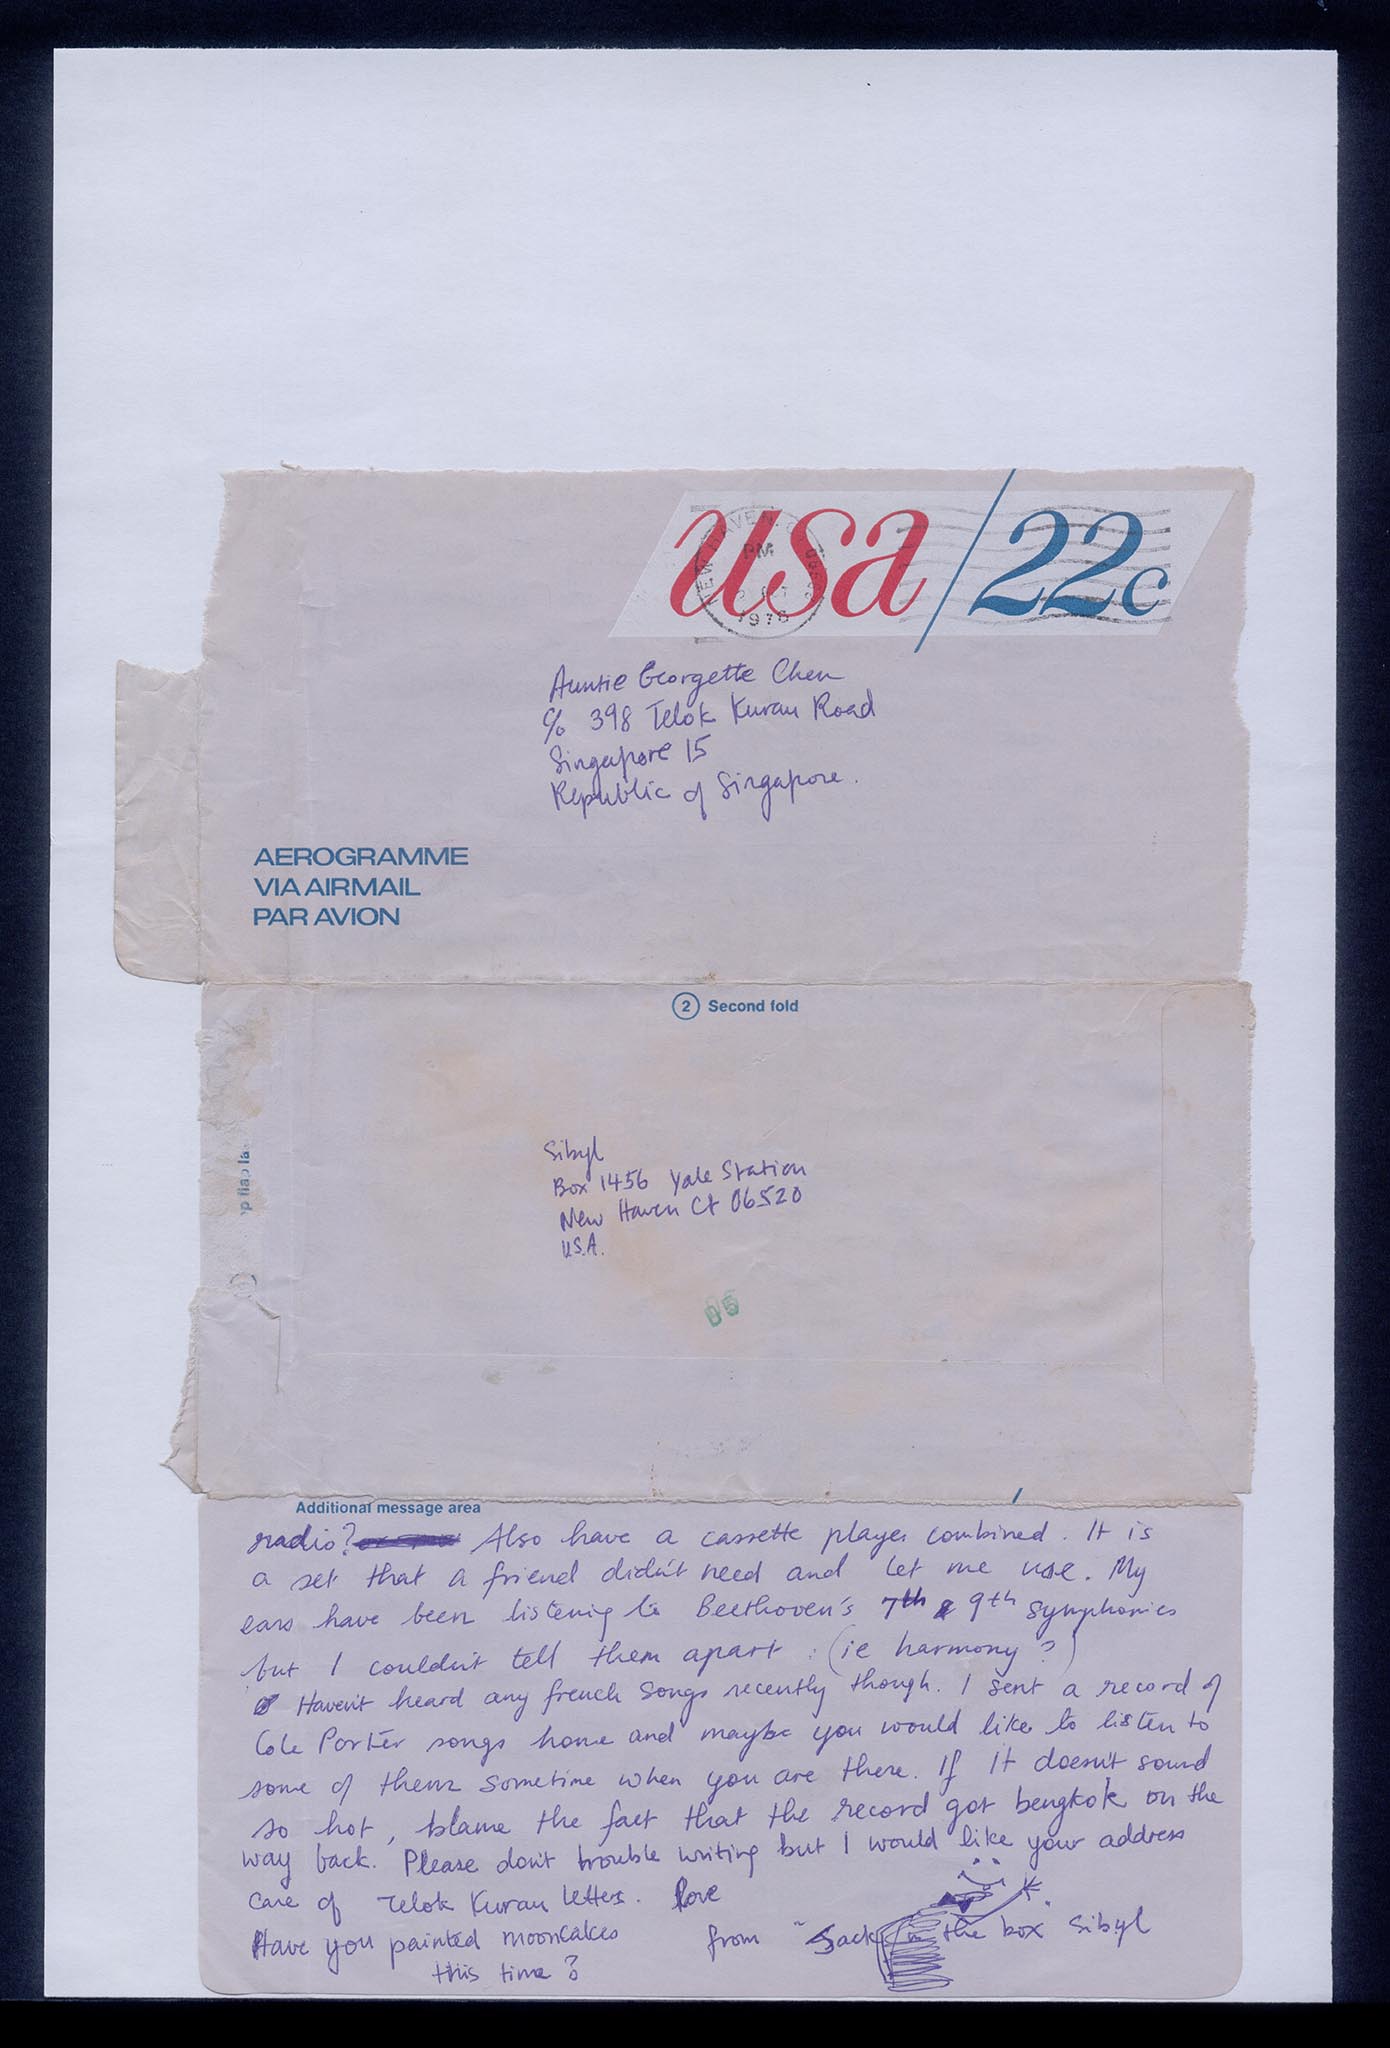 usa/22c
NEW HAVEN
PM
1976
Auntie Georgette Chen
c/o 398 Telok Kurau Road
Singapore 15
Republic of Singapore.
AEROGRAMME
VIA AIRMAIL
PAR AVION
2 Second fold
Sibyl
Box 1456 Yale Station
New Haven Ct 06520
U.S.A.
Additional message area
radio? Also have a cassette player combined. It is
a set that a friend didn't need and let me use. My
ears have been listening to Beethoven's 7th & 9th symphonies
but I couldn't tell them apart. (ie harmony?)
Haven't heard any french songs recently though. I sent a record of
Cole Porter songs home and maybe you would like to listen to
some of them sometime when you are there. If it doesn't sound
so hot, blame the fact that the record got bengkok on the
way back. Please don't trouble writing but I would like your address
care of Telok Kurau letters. Love
Have you painted mooncakes from "Jack in the box" Sibyl
this time?